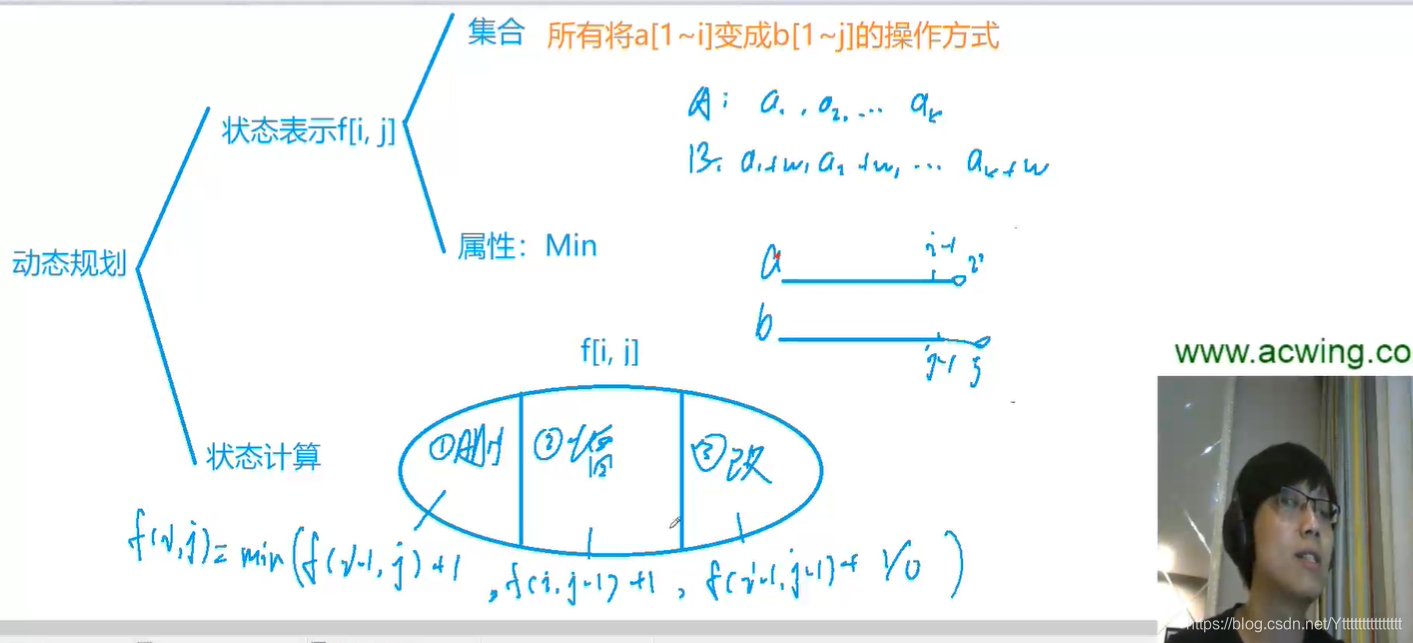 集合 所有将a[1~i]变成b[1~j]的操作方式
A: a1, a2, ... ak
状态表示f[i, j]
B: a1+w, a2+w, ... ak+w
属性：Min
i-1 i
a
动态规划
b
j-1 j
f[i, j]
www.acwing.co
①删 ②增 ③改
状态计算
f(i,j)=min(f(i-1,j)+1, f(i,j-1)+1, f(i-1,j-1)+1/0)
https://blog.csdn.net/Ytttttttttttttttt